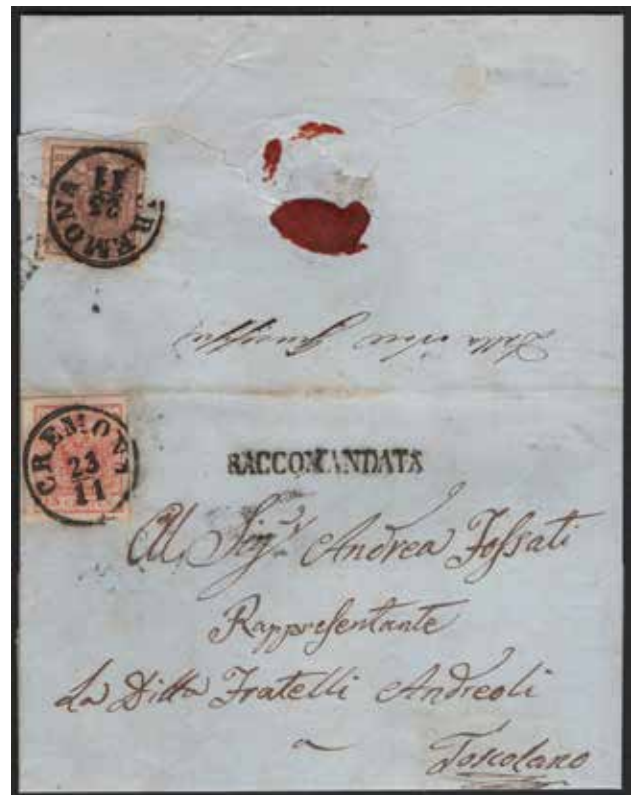 CREMONA
23
11
CREMONA
23
11
RACCOMANDATA
Al Sigr Andrea Fossati
Rappresentante
La Ditta Fratelli Andreoli
Toscolano